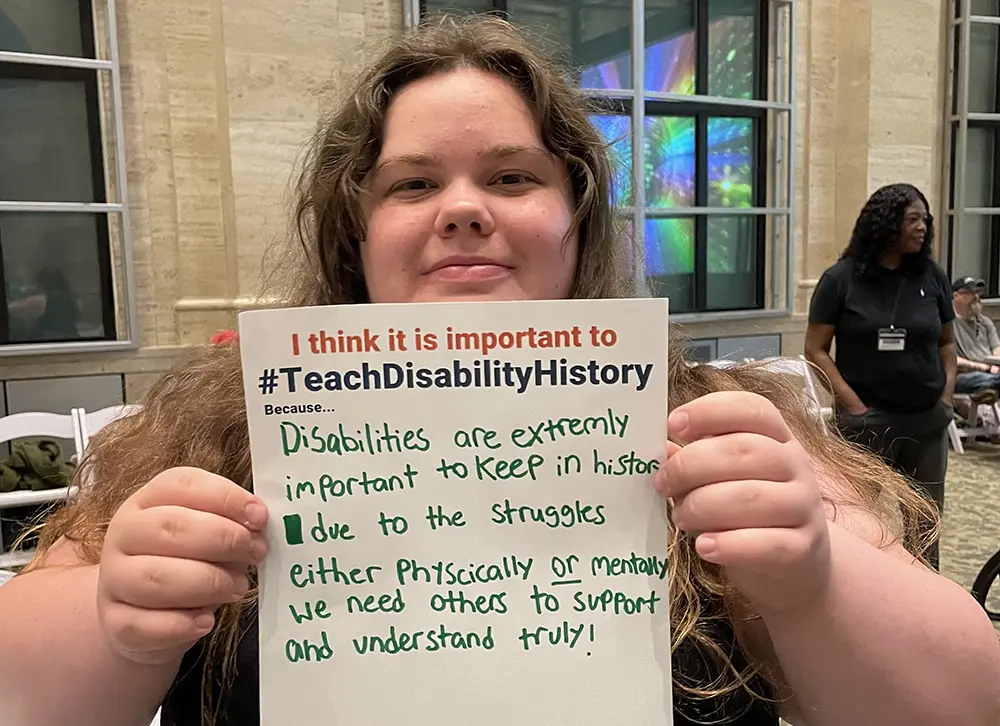 I think it is important to
#TeachDisabilityHistory
Because...
Disabilities are extremly
important to keep in histor
due to the struggles
either Physcically or mentally
we need others to support
and understand truly!